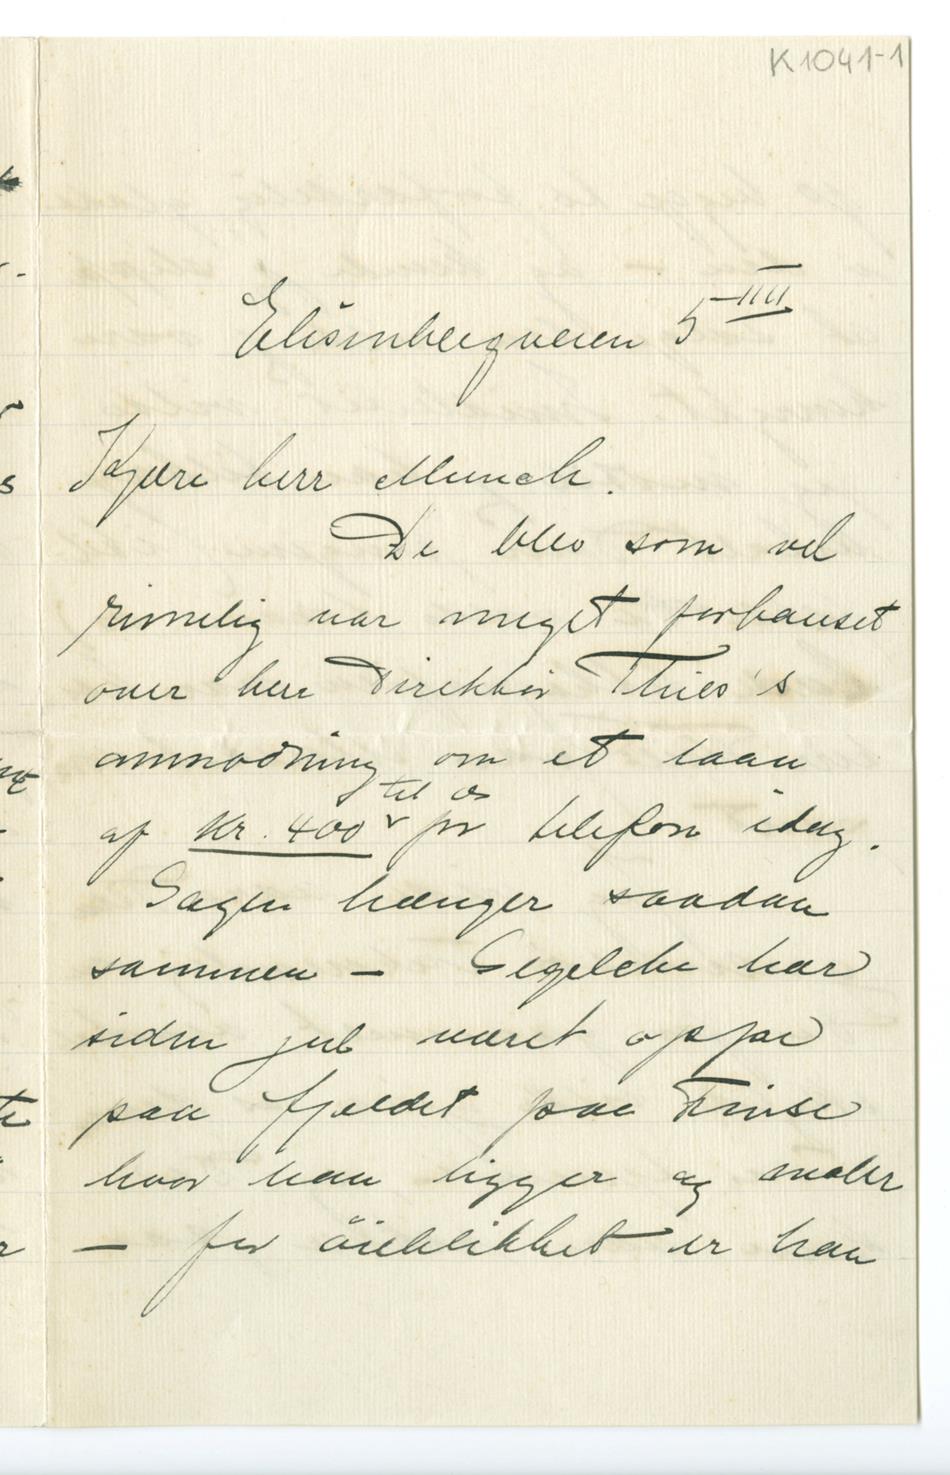 K 1041-1
Elisenbergveien 5 IIII
Kjære herr Munch.
De blev som vel
rimelig var meget forbauset
over herr Direktør Thiis's
anmodning om et laan
til os
af Kr. 400 pr telefon idag.
Sagen hænger saadan
sammen – Segelcke har
siden jul været oppe
paa fjeldet paa Finse
hvor han ligger og maler
– for öieblikket er han